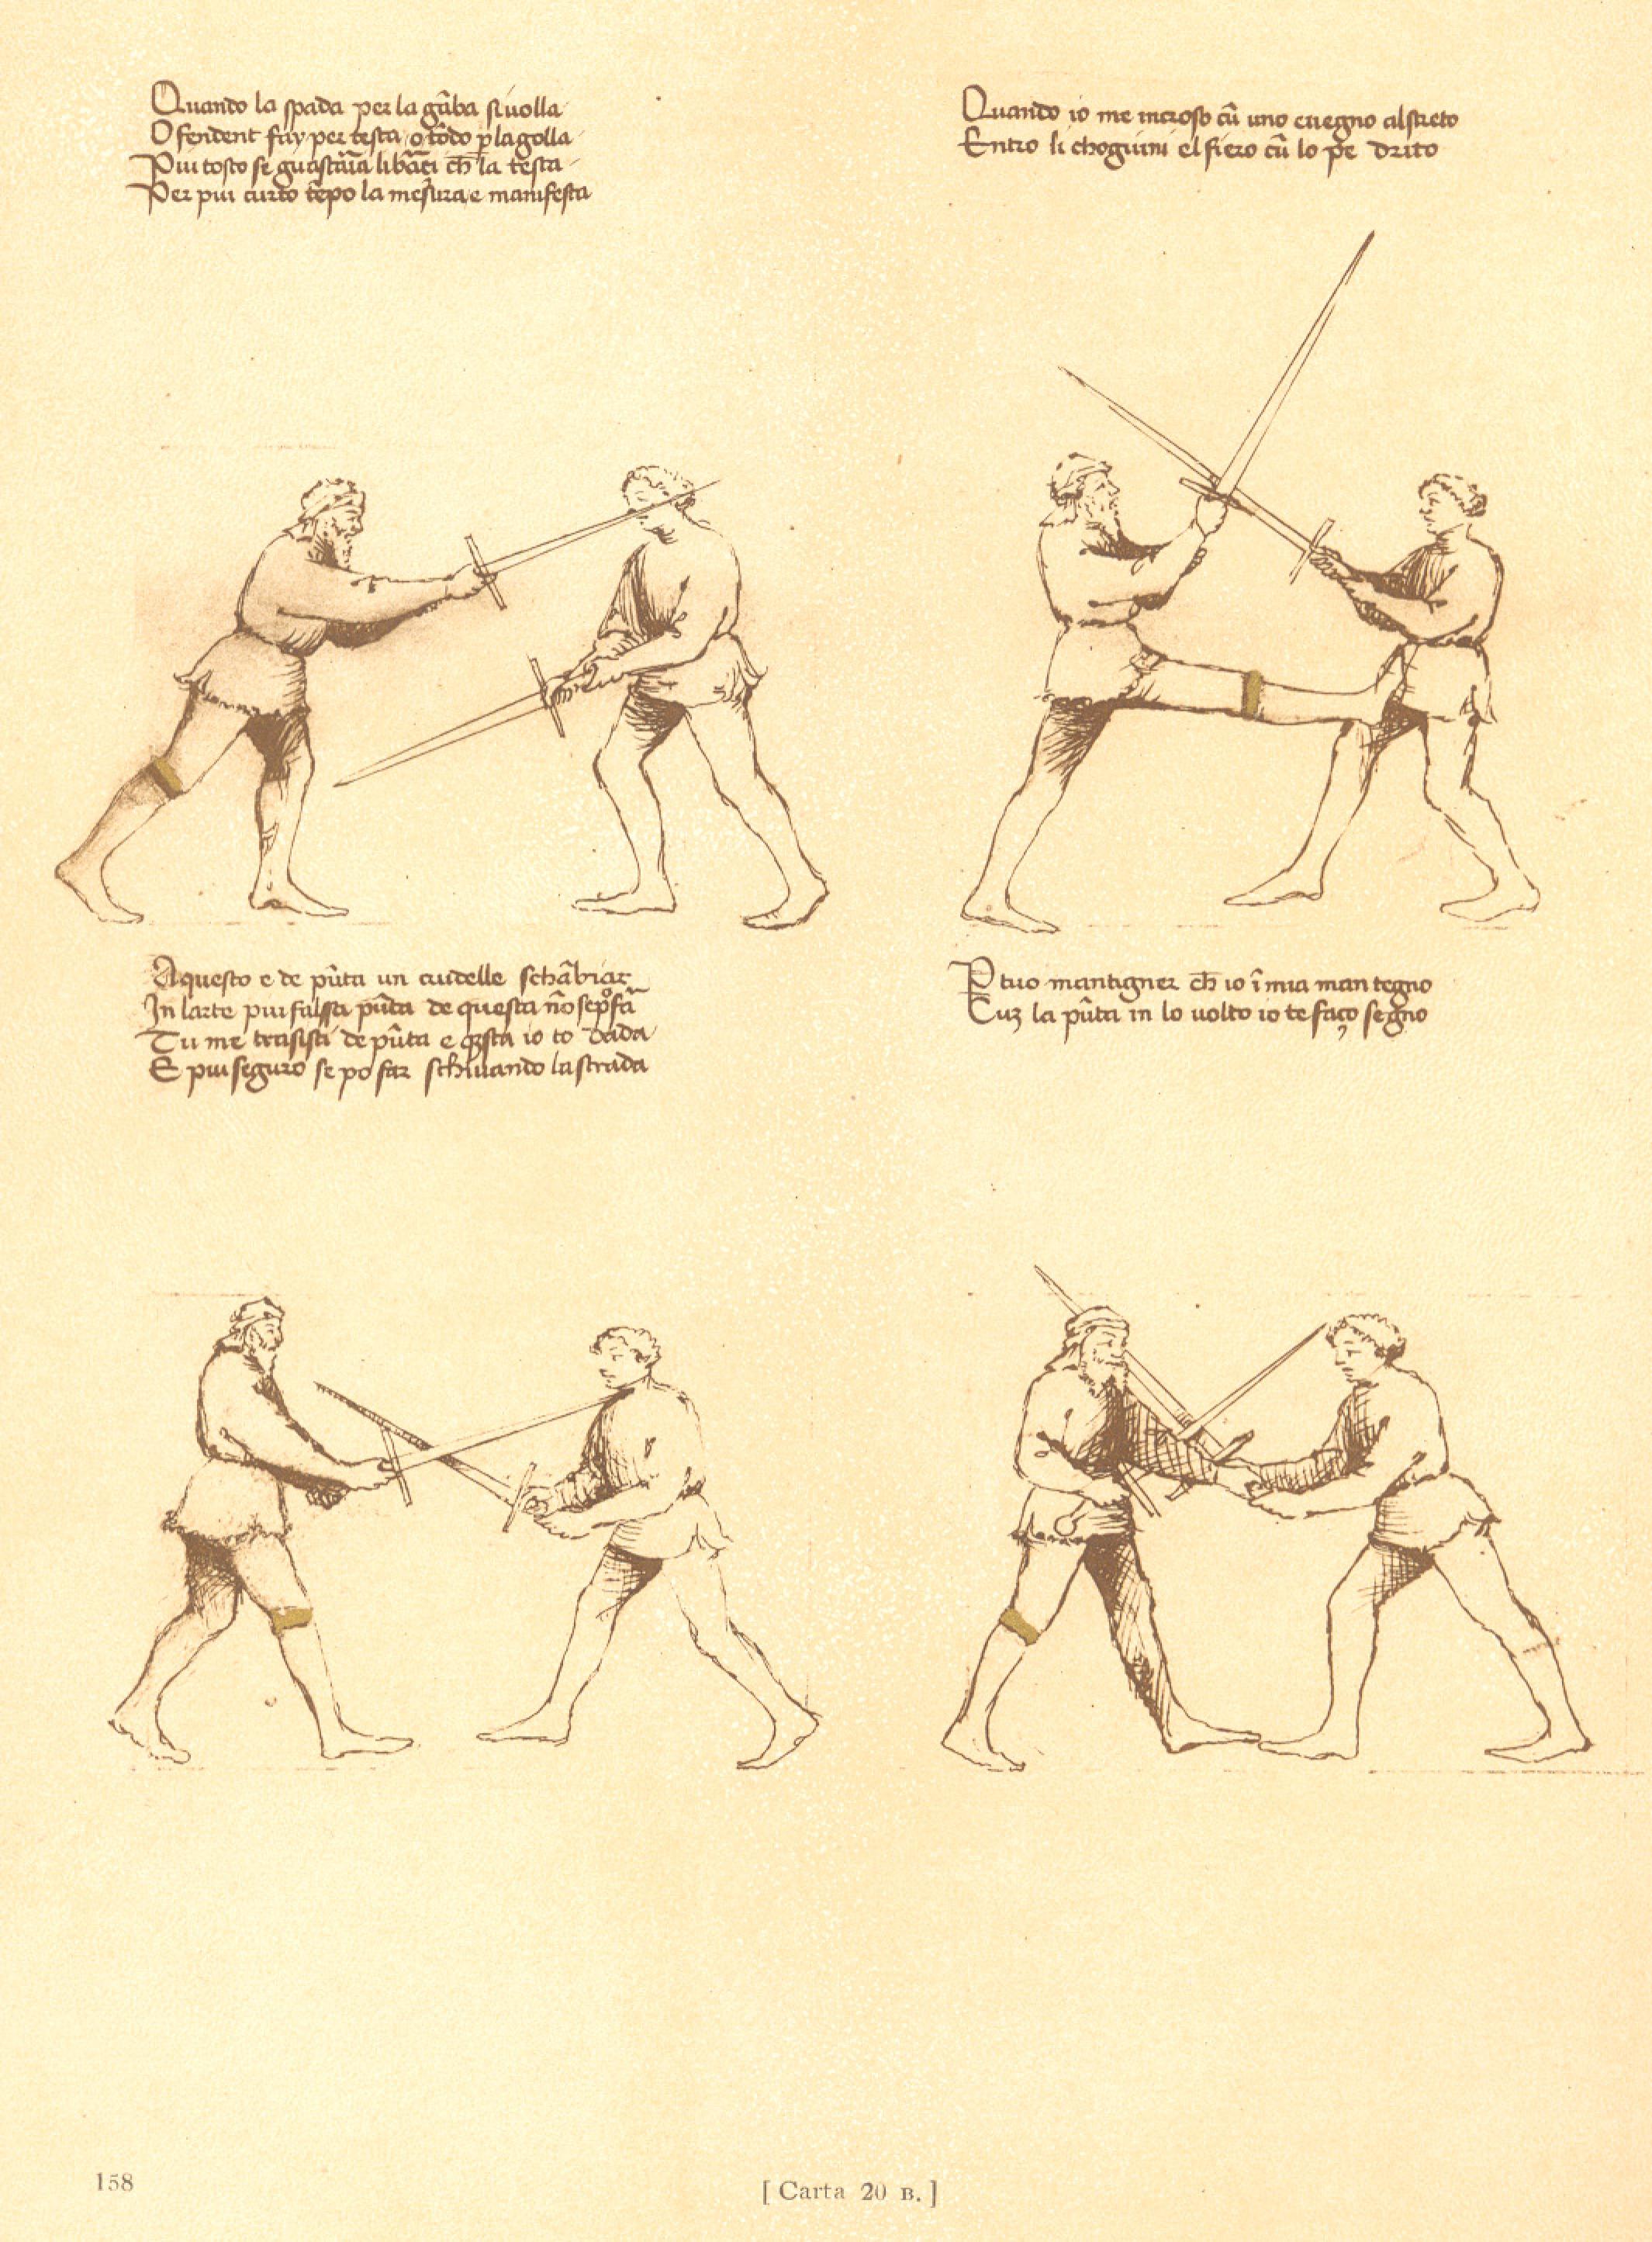 Quando la spada per la gãba si uolla
O fendent fay per testa o tõdo p la golla
Piu tosto se guastaria li bã ch̃ la testa
Per piu curto tẽpo la mesura e manifesta
Quando io me incroso cũ uno e uegno al streto
Entro li choguini el fiero cũ lo pe drito
Aquesto e de pũta un crudelle schãbiar
In larte piu falssa pũta de questa nõ se po far
Tu me trasisti de pũta e questa io to dada
E piu seguro se po far schiuando la strada
P tuo mantigner ch̃ io ĩ mia man tegno
Cuȝ la pũta in lo uolto io te faço segno
158
[ Carta 20 B. ]